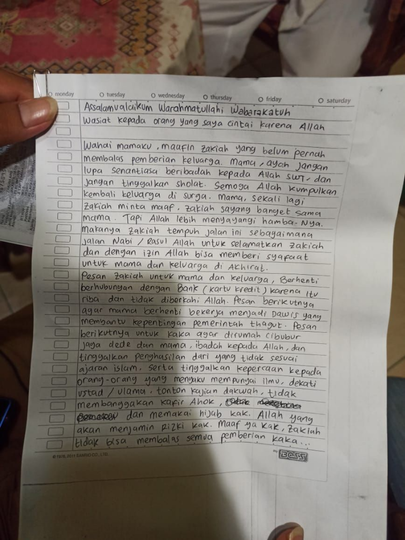 monday tuesday wednesday thursday friday saturday
Assalamualaikum Warahmatullahi Wabarakatuh
Wasiat kepada orang yang saya cintai karena Allah
Wahai mamaku, maafin zakiah yang belum pernah
membalas pemberian keluarga. mama, ayah jangan
lupa senantiasa beribadah kepada Allah SWT, dan
jangan tinggalkan sholat. Semoga Allah kumpulkan
kembali keluarga di surga. Mama, sekali lagi
zakiah minta maaf. zakiah sayang banget sama
mama. Tapi Allah lebih menyayangi hamba-Nya.
makanya zakiah tempuh jalan ini sebagaimana
jalan Nabi / Rasul Allah untuk selamatkan zakiah
dan dengan izin Allah bisa memberi syafaat
untuk mama dan keluarga di Akhirat.
Pesan zakiah untuk mama dan keluarga, Berhenti
berhubungan dengan Bank (kartu kredit) karena itu
riba dan tidak diberkahi Allah. Pesan berikutnya
agar mama berhenti bekerja menjadi Dawis yang
membantu kepentingan pemerintah thogut. Pesan
berikutnya untuk kaka agar dirumah cibubur
jaga dede dan mama, ibadah kepada Allah, dan
tinggalkan penghasilan dari yang tidak sesuai
ajaran Islam. serta tinggalkan kepercaan kepada
orang-orang yang mengaku mempunyai ilmu, dekati
ustad / ulama. tonton kajian dakwah, tidak
membanggakan kafir Ahok,
dan memakai hijab kak. Allah yang
akan menjamin Rizki kak. Maaf ya kak, zakiah
tidak bisa membalas semua pemberian kaka...